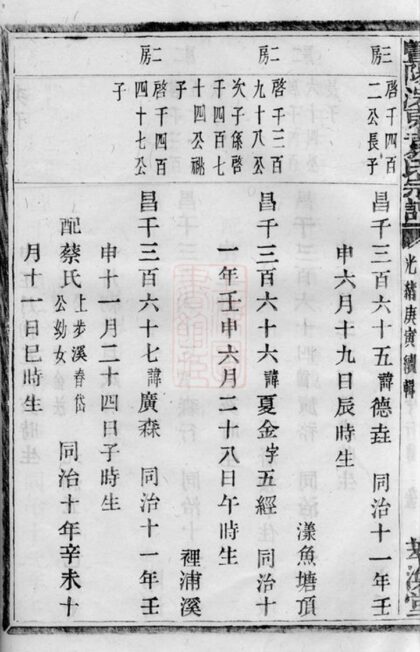 光緒庚寅續輯
三房
啓千四百
二公長子
昌千三百六十五諱德垚 同治十一年壬
申六月十九日辰時生
二房
啓千三百
九十八公
次子係啓
千四百七
十四公祧
子
漾魚塘頂
昌千三百六十六諱夏金字五經 同治十
一年壬申六月二十八日午時生
二房
啓千四百
四十七公
子
裡浦溪
昌千三百六十七諱廣森 同治十一年壬
申十一月二十四日子時生
配蔡氏上步溪春岱公幼女 同治十年辛未十
月十一日巳時生